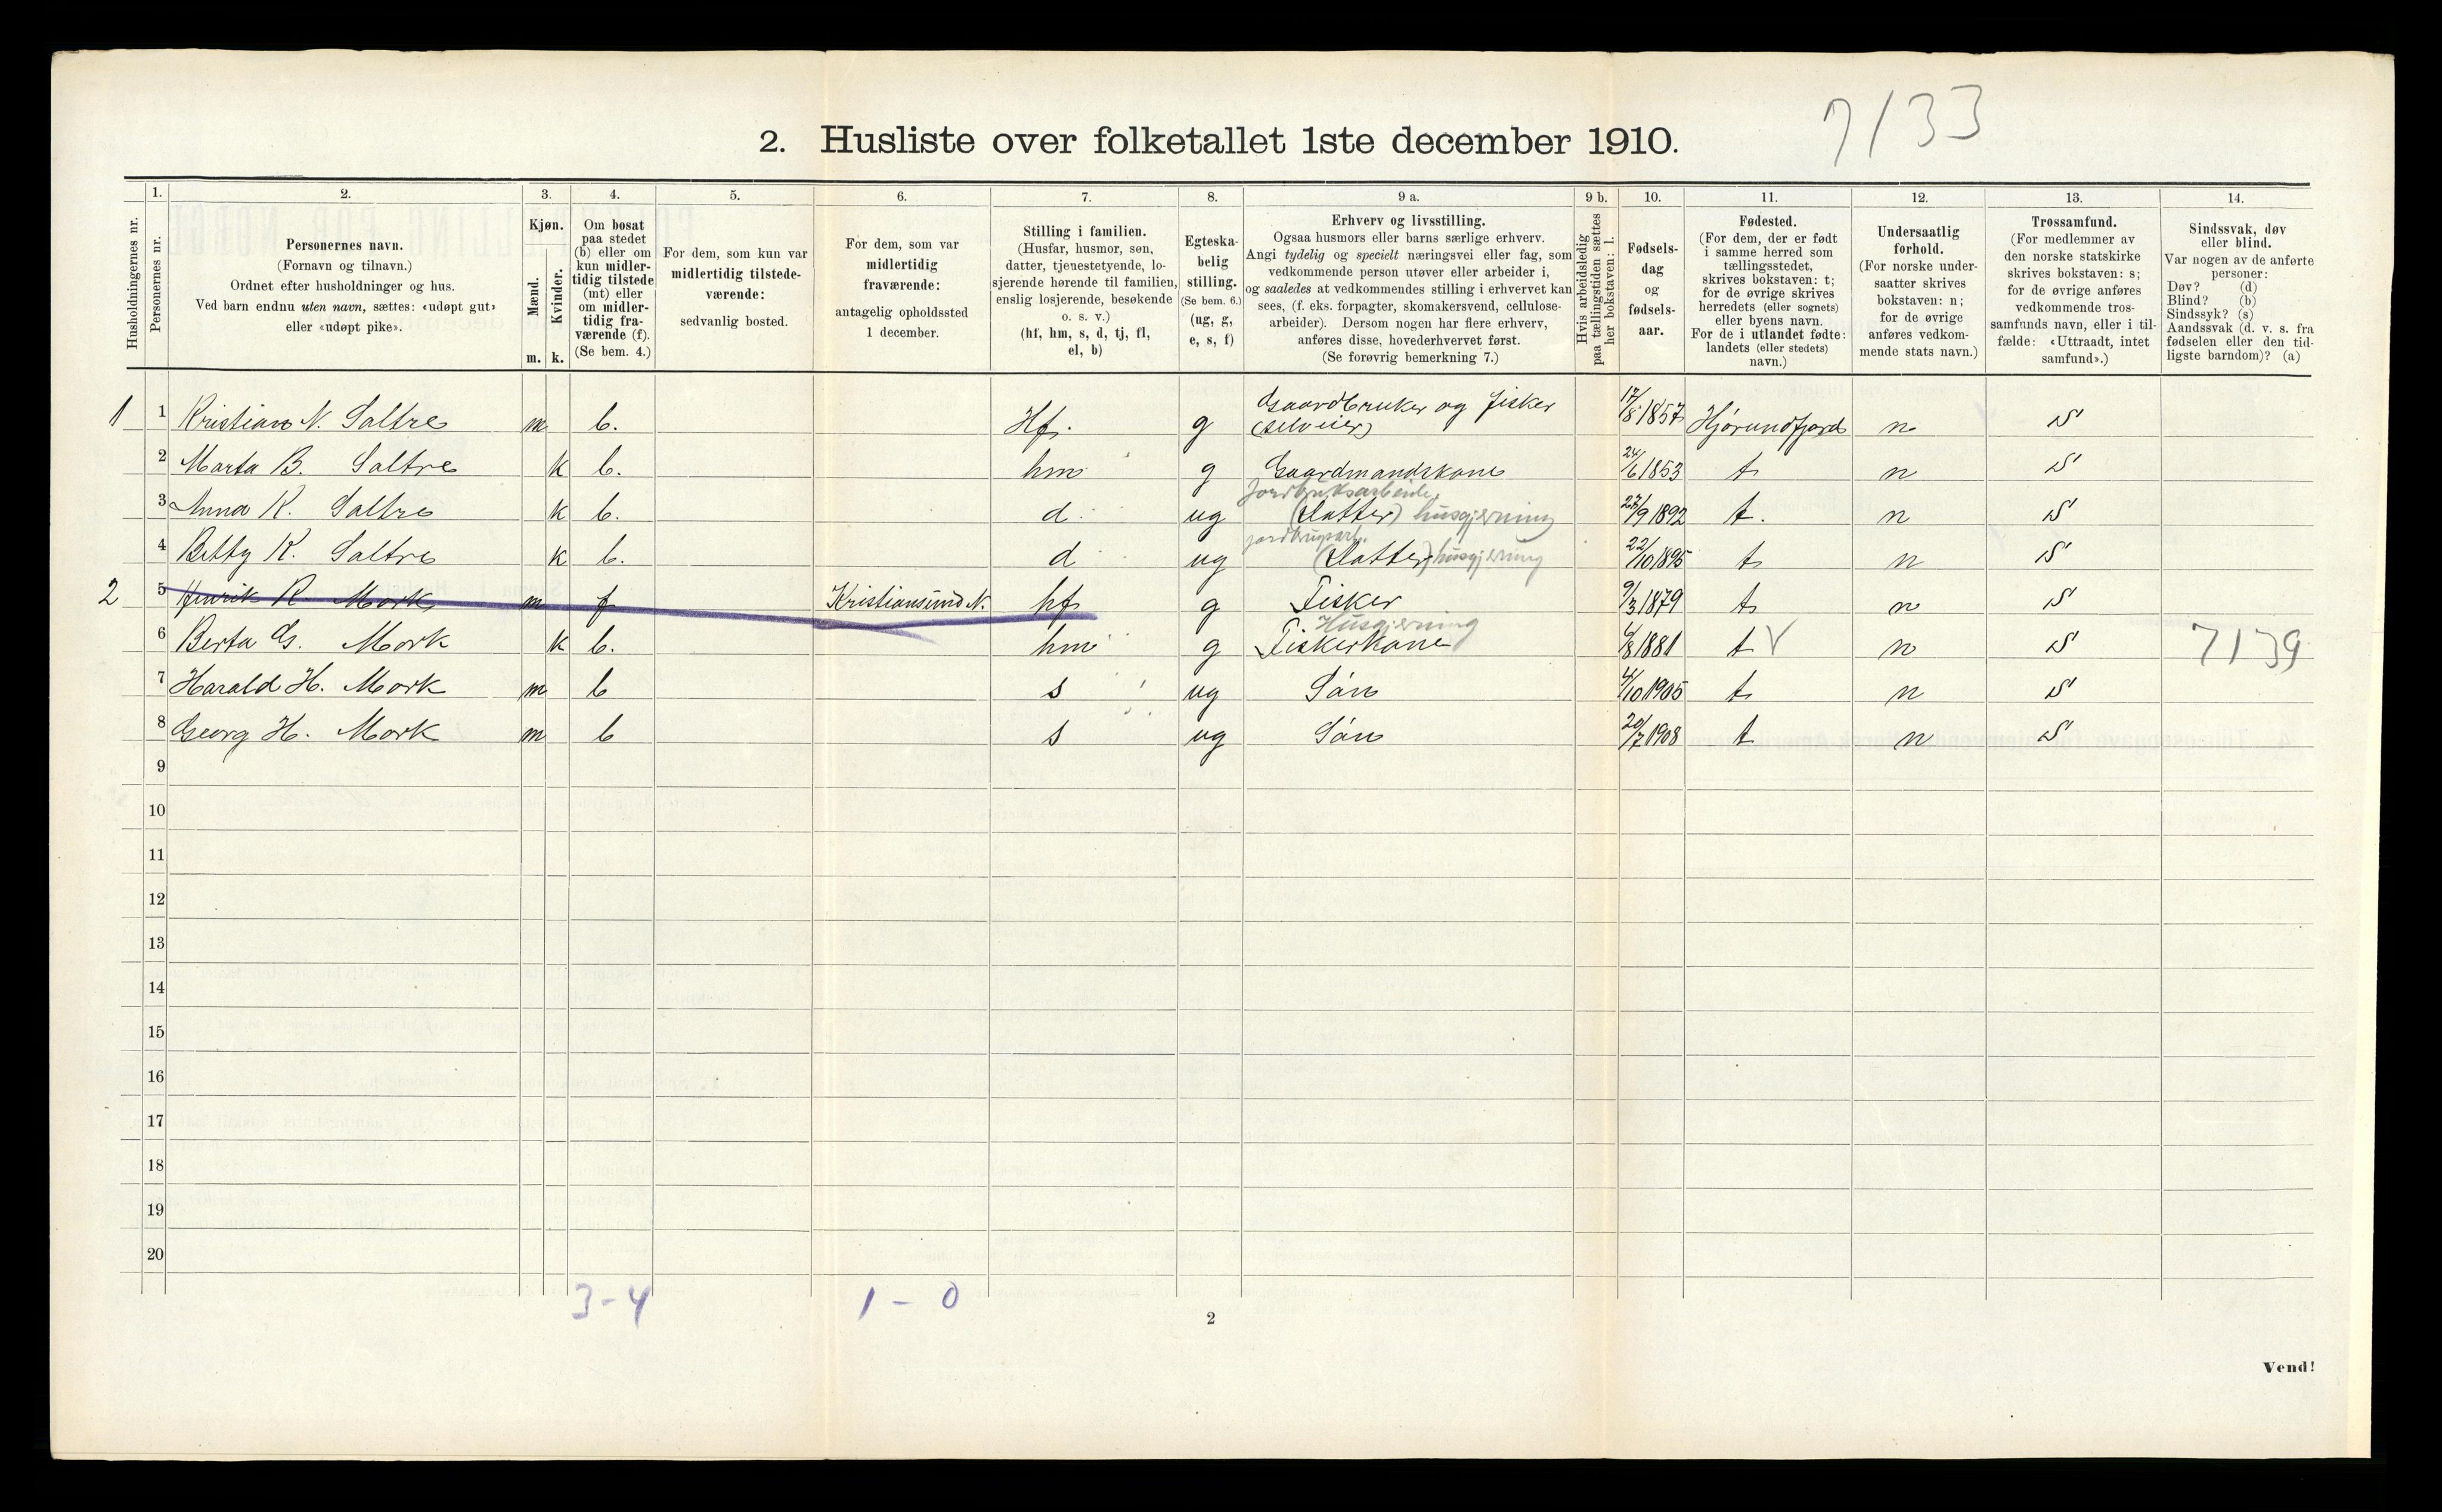 7133
2. Husliste over folketallet 1ste december 1910.
Husholdningernes nr.
1.
Personernes nr.
2.
Personernes navn.
(Fornavn og tilnavn.)
Ordnet efter husholdninger og hus.
Ved barn endnu uten navn, sættes: «udøpt gut»
eller «udøpt pike».
3.
Kjøn.
Mænd.
Kvinder.
m. k.
4.
Om bosat
paa stedet
(b) eller om
kun midler-
tidig tilstede
(mt) eller
om midler-
tidig fra-
værende (f).
(Se bem. 4.)
5.
For dem, som kun var
midlertidig tilstede-
værende:
sedvanlig bosted.
6.
For dem, som var
midlertidig
fraværende:
antagelig opholdssted
1 december.
7.
Stilling i familien.
(Husfar, husmor, søn,
datter, tjenestetyende, lo-
sjerende hørende til familien,
enslig losjerende, besøkende
o. s. v.)
(hf, hm, s, d, tj, fl,
el, b)
8.
Egteska-
belig
stilling.
(Se bem. 6.)
(ug, g,
e, s, f)
9 a.
Erhverv og livsstilling.
Ogsaa husmors eller barns særlige erhverv.
Angi tydelig og specielt næringsvei eller fag, som
vedkommende person utøver eller arbeider i,
og saaledes at vedkommendes stilling i erhvervet kan
sees, (f. eks. forpagter, skomakersvend, cellulose-
arbeider). Dersom nogen har flere erhverv,
anføres disse, hovederhvervet først.
(Se forøvrig bemerkning 7.)
9 b.
Hvis arbeidsledig
paa tællingstiden sættes
her bokstaven: l.
10.
Fødsels-
dag
og
fødsels-
aar.
11.
Fødested.
(For dem, der er født
i samme herred som
tællingsstedet,
skrives bokstaven: t;
for de øvrige skrives
herredets (eller sognets)
eller byens navn.
For de i utlandet fødte:
landets (eller stedets)
navn.)
12.
Undersaatlig
forhold.
(For norske under-
saatter skrives
bokstaven: n;
for de øvrige
anføres vedkom-
mende stats navn.)
13.
Trossamfund.
(For medlemmer av
den norske statskirke
skrives bokstaven: s;
for de øvrige anføres
vedkommende tros-
samfunds navn, eller i til-
fælde: «Uttraadt, intet
samfund».)
14.
Sindssvak, døv
eller blind.
Var nogen av de anførte
personer:
Døv? (d)
Blind? (b)
Sindssyk? (s)
Aandssvak (d. v. s. fra
fødselen eller den tid-
ligste barndom)? (a)
1 1 Kristian N. Saltre m b. Hf. g Gaardbruker og fisker (selveier) 17/8 1857 Hjørundfjord n S
2 Marta B. Saltre k b. hm g Gaardmandskone 24/6 1853 t n S
3 Anna K. Saltre k b. d. ug jordbruksarbeide (Datter) husgjerning 27/9 1892 t. n S
4 Betty K. Saltre k b. d ug (Datter) husgjerning 22/10 1895 t n S
2 5 Henrik R. Mork m f Kristiansund N. hf g Fisker 9/3 1879 t n S
6 Berta G. Mork k b. hm g Husgjerning Fiskerkone 6/8 1881 t V n S 7139
7 Harald H. Mork m b s ug Søn 4/10 1905 t n S
8 Georg H. Mork m b s ug Søn 20/7 1908 t n S
9
10
11
12
13
14
15
16
17
18
19
20
3-4 1-0
2
Vend!